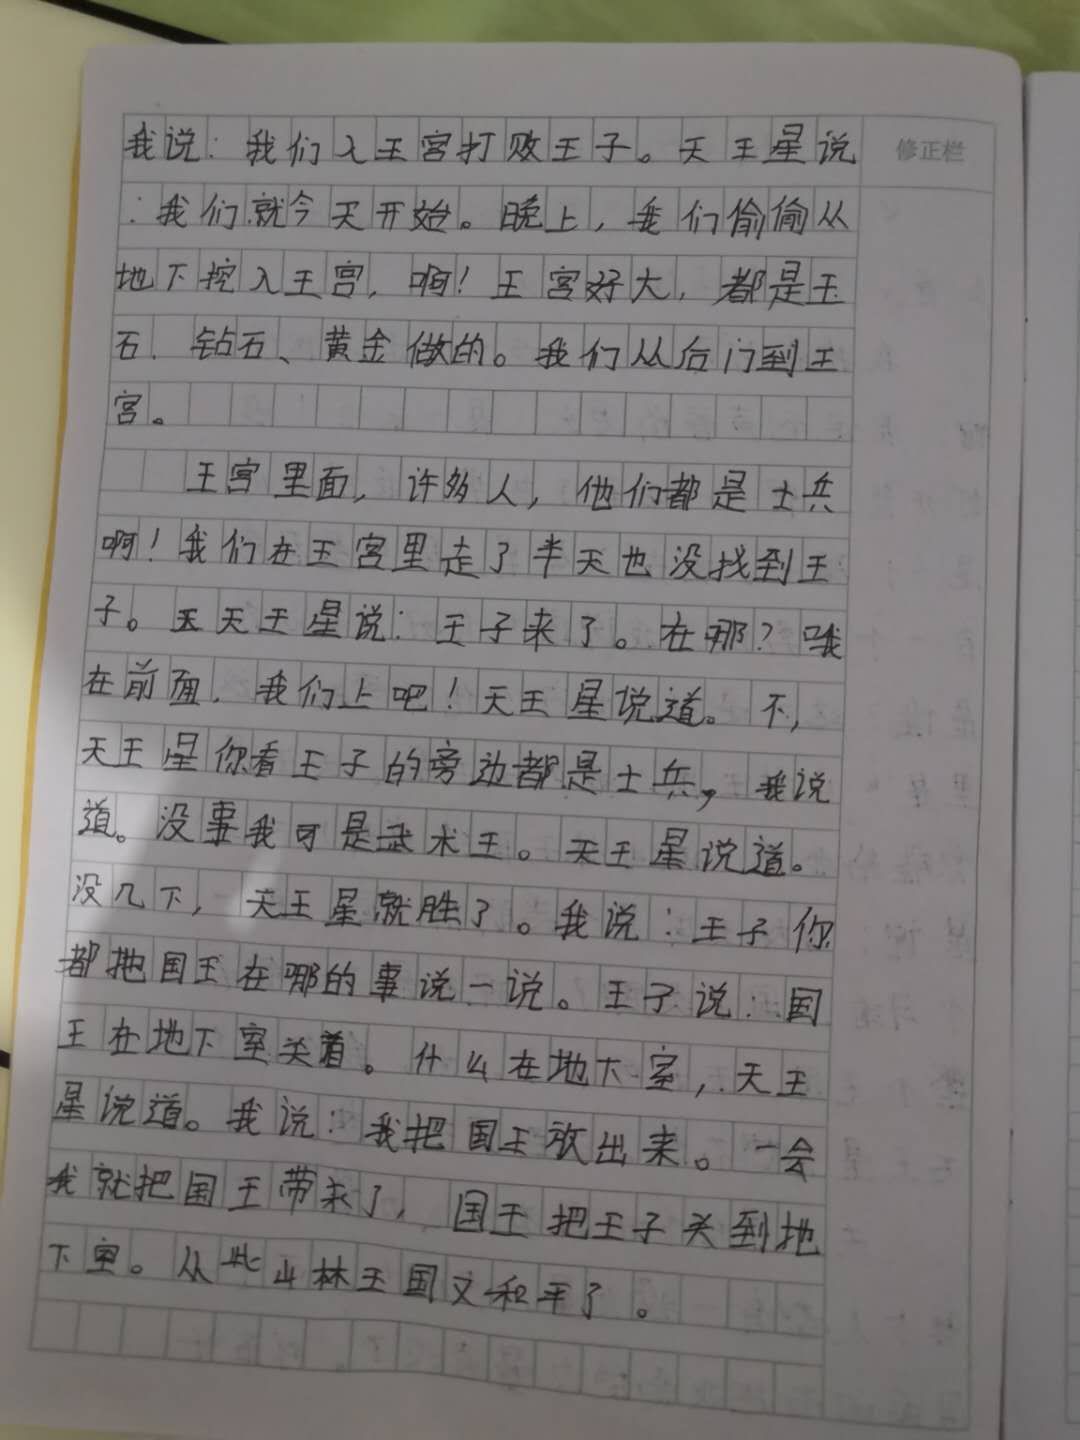 我说：我们入王宫打败王子。天王星说
修正栏
：我们就今天开始。晚上，我们偷偷从
地下挖入王宫，啊！王宫好大，都是玉
石、钻石、黄金做的。我们从后门到王
宫。
王宫里面，许多人，他们都是士兵
啊！我们在王宫里走了半天也没找到王
子。天王星说：王子来了。在哪？哦
在前面，我们上吧！天王星说道。不，
天王星你看王子的旁边都是士兵，我说
道。没事我可是武术王。天王星说道。
没几下，天王星就胜了。我说：王子你
都把国王在哪的事说一说。王子说：国
王在地下室关着。什么在地下室，天王
星说道。我说：我把国王放出来。一会
我就把国王带来了，国王把王子关到地
下室。从此山林王国又和平了。